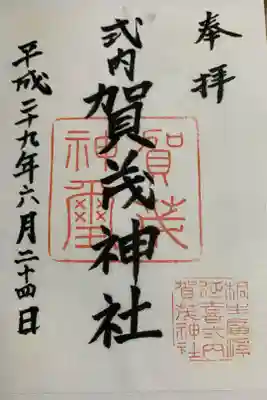 奉拝
式内
賀茂神社
平成二十九年六月二十四日
賀茂
神璽
桐生廣澤
延喜式内
賀茂神社